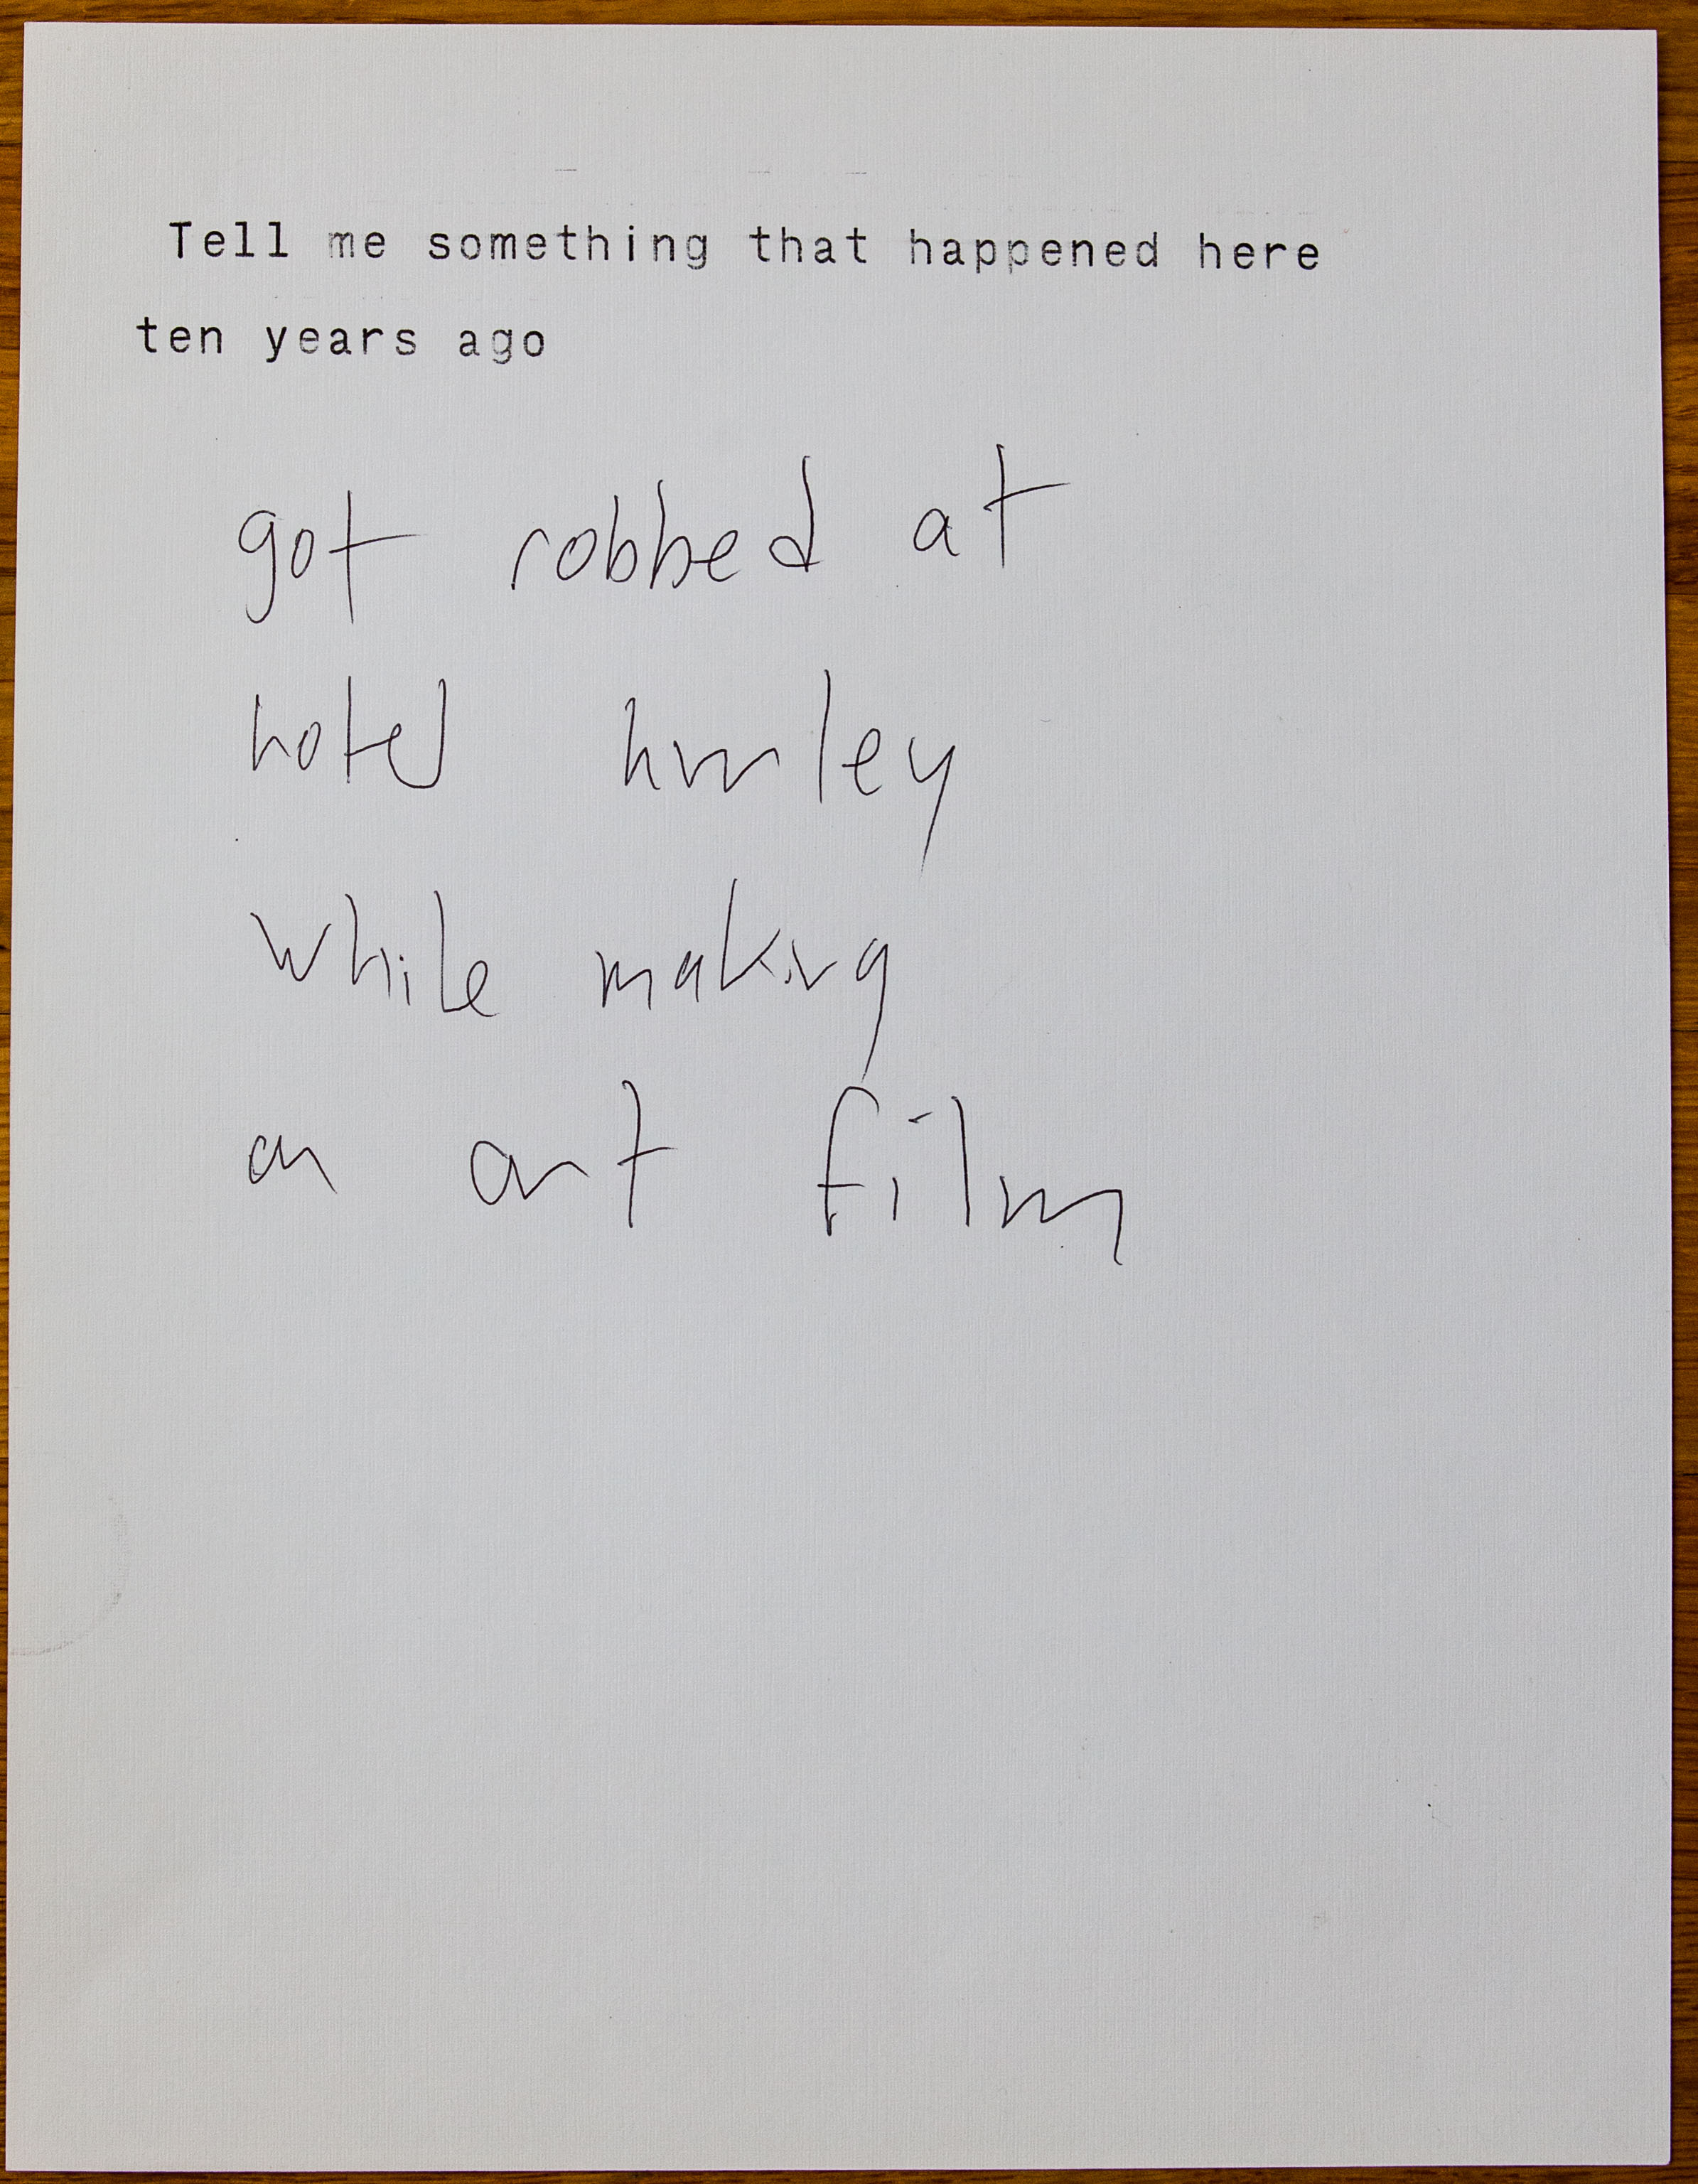 Tell me something that happened here
ten years ago
got robbed at
hotel hurley
while making
an art film